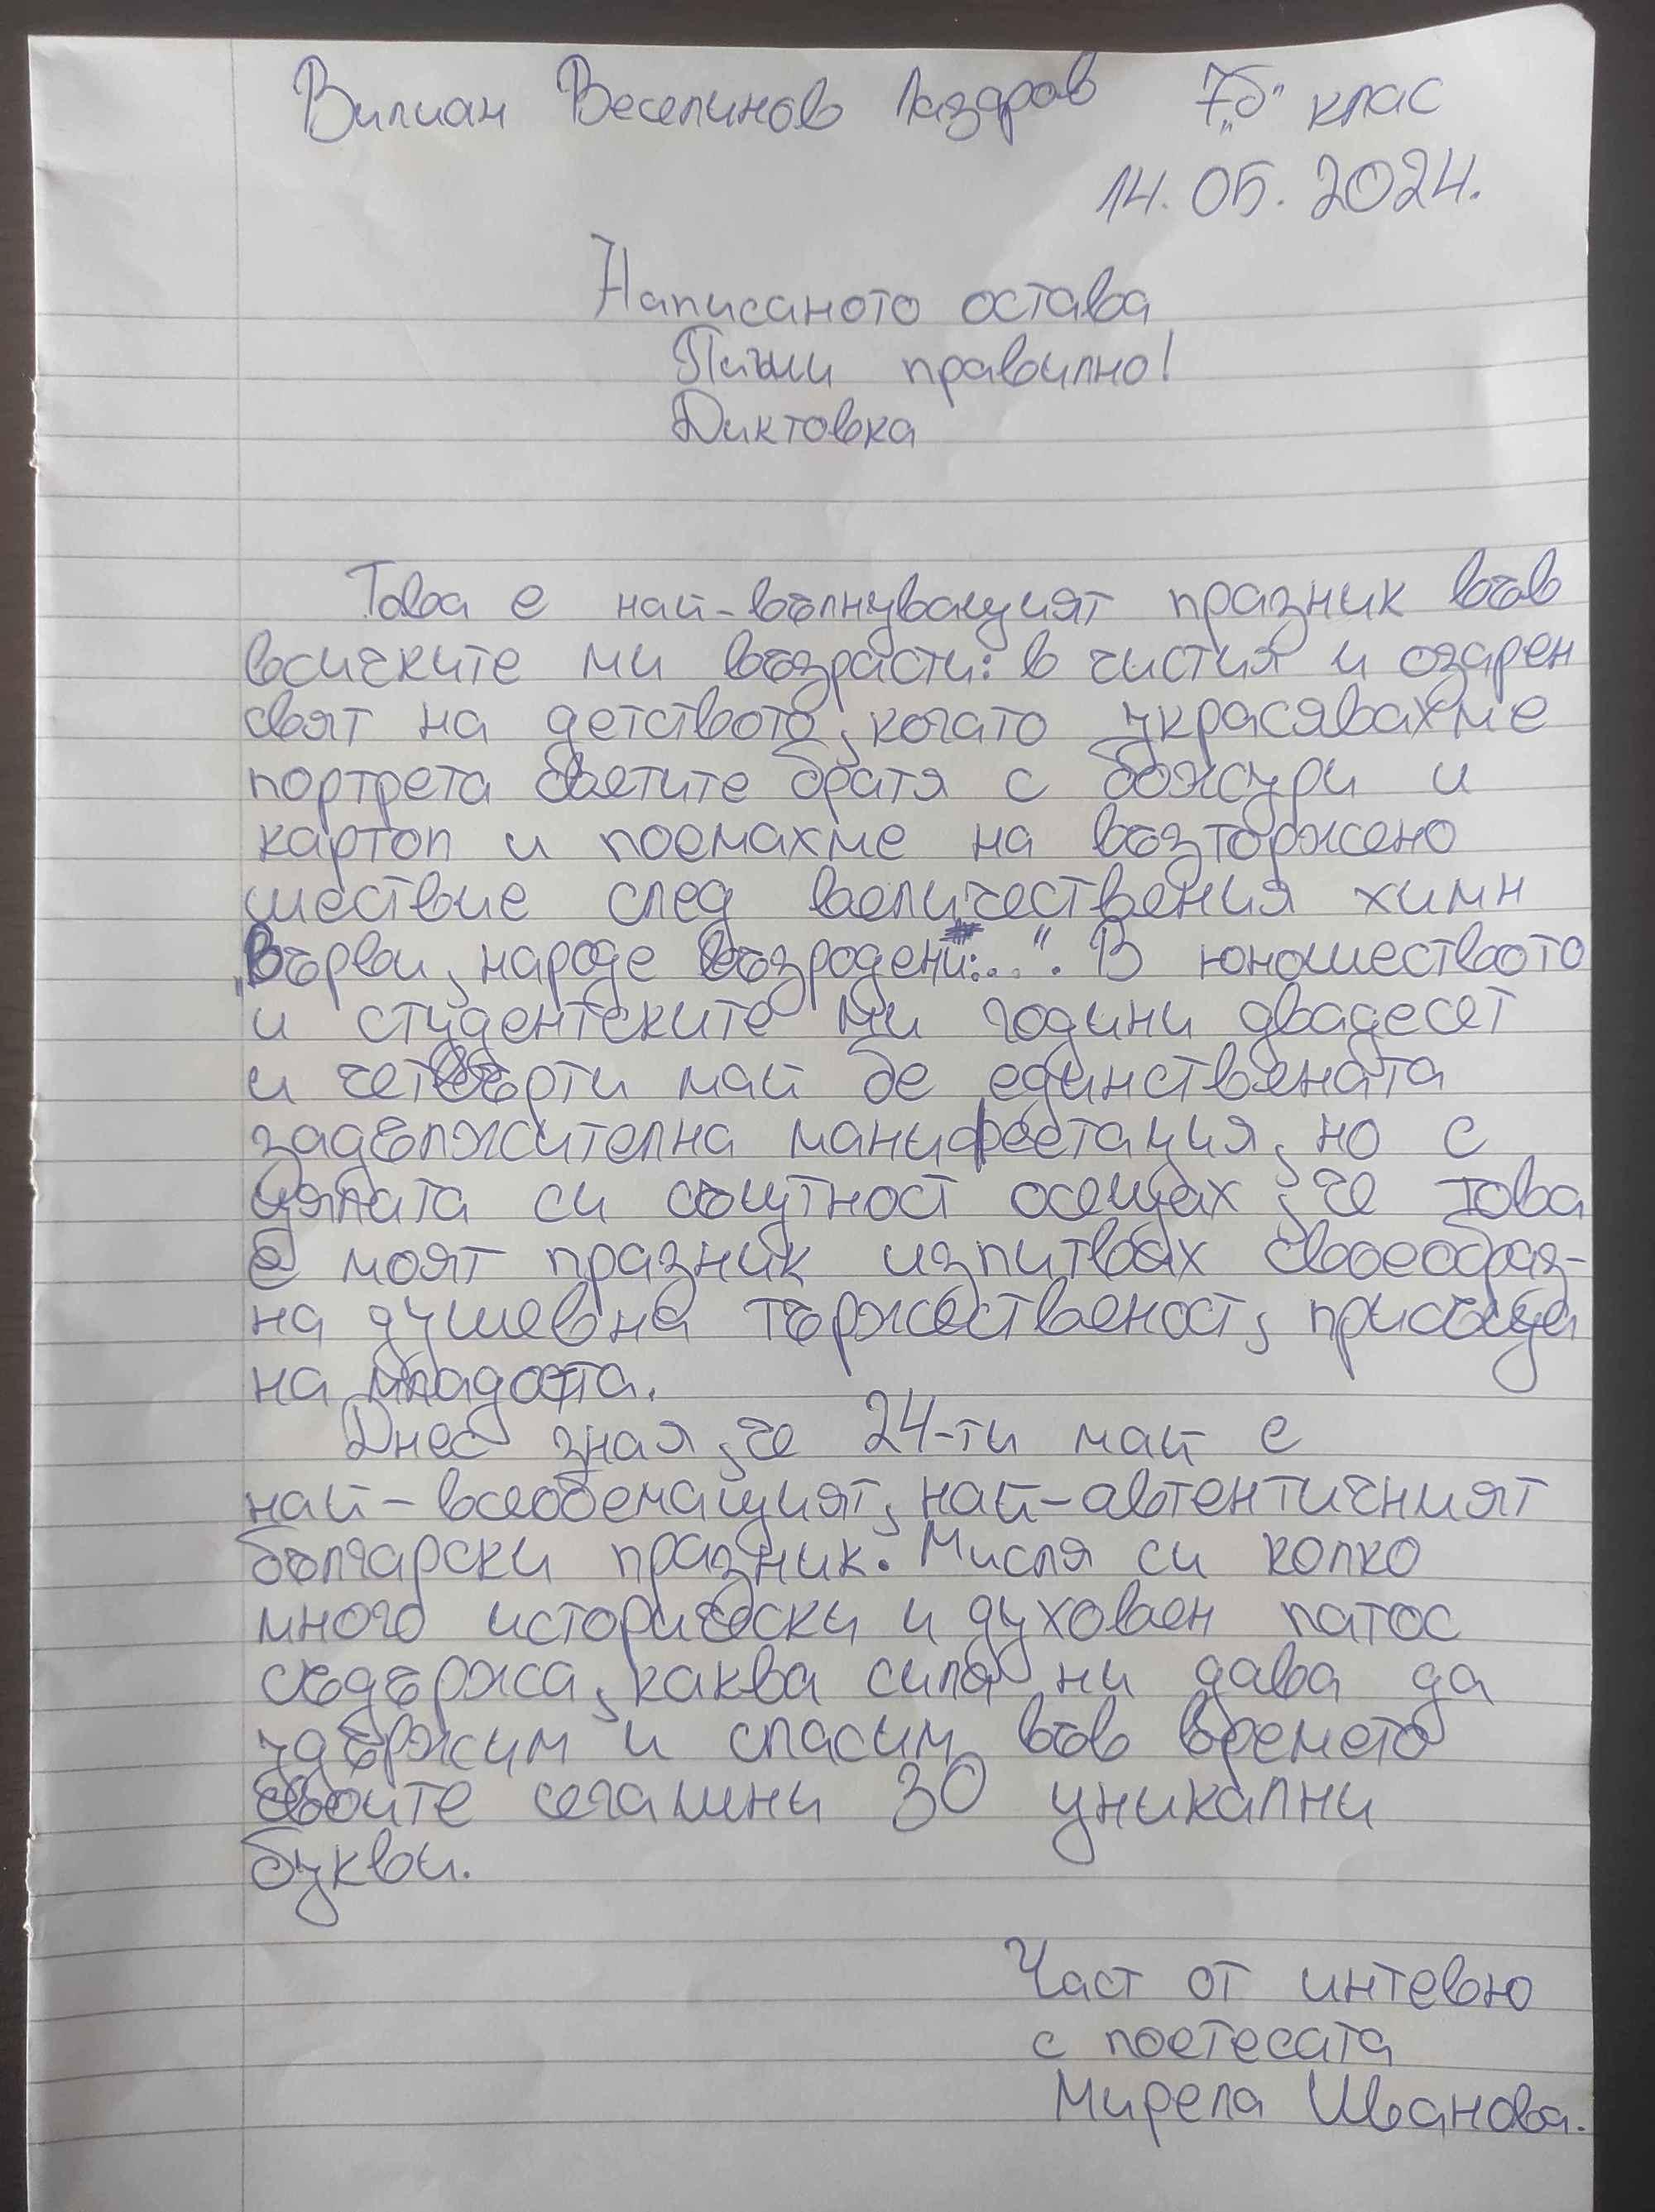 Вилиан Веселинов Лаздров 7„б“ клас
14.05.2024.
Написаното остава
Пиши правилно!
Диктовка
Това е най-вълнуващият празник във
всичките ми възрасти: в чистия и озарен
свят на детството, когато украсявахме
портрета светите братя с божури и
картоп и поемахме на възторжено
шествие след величествения химн
„Върви, народе възродени..." . В юношеството
и студентските ми години двадесет
и четвърти май бе единствената
задължителна манифестация, но с
цялата си същност осещах, че това
е моят празник изпитвах своеобраз-
на душевна тържественост, присъща
на младостта.
Днес зная, че 24-ти май е
най-всеобемащият, най-автентичният
български празник. Мисля си колко
много исторически и духовен патос
съдържа, каква сила ни дава да
удържим и спасим във времето
своите сегашни 30 уникални
букви.
Част от интевю
с поетесата
Мирела Иванова.